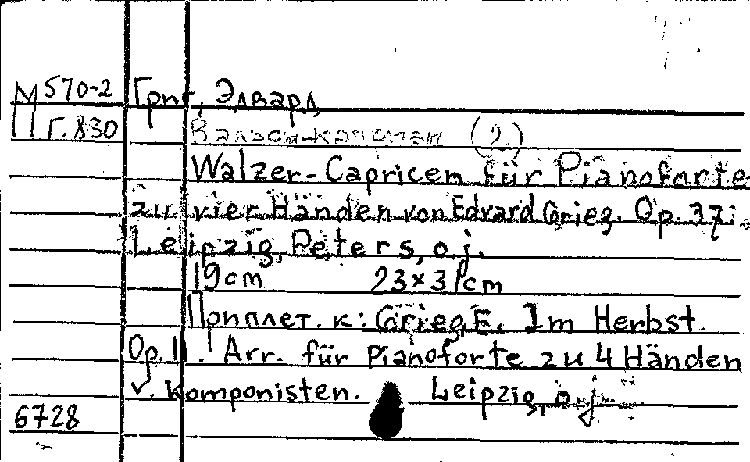 М 570-2 Григ, Эдвард
П Г. 830 Вальсы-каприсы (2)
Walzer-Capricem für Pianoforte
zu vier Händen von Edvard Grieg. Op. 37.
Leipzig, Peters, o.j.
19 cm 23×31 cm
Припплет. к: Grieg, E. Im Herbst.
Op. 11. Arr. für Pianoforte zu 4 Händen
v. Komponisten. Leipzig, o.j.
6728